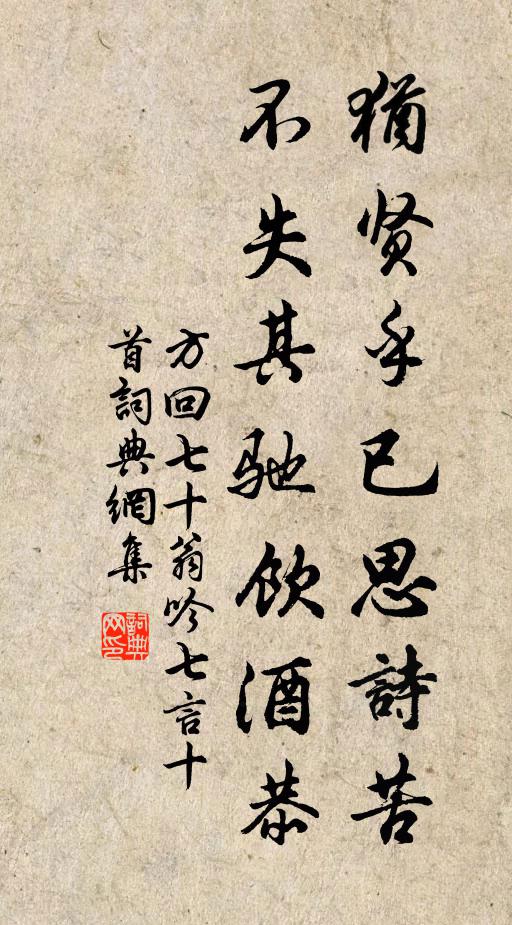 猶贤乎已思詩苦
不失其馳飲酒恭
方回七十翁吟七言十
首詞典網集
詞典
网印